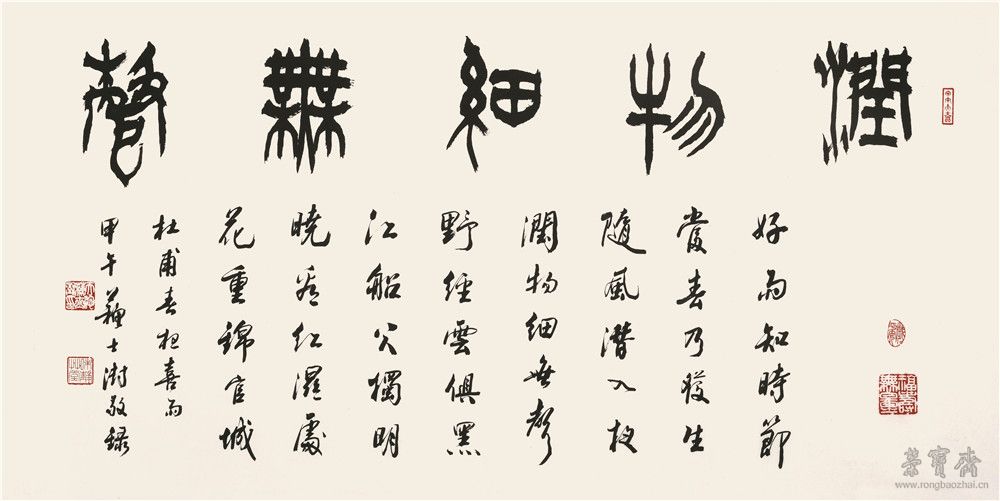 潤物細無聲
好雨知時節
當春乃發生
隨風潛入夜
潤物細無聲
野徑雲俱黑
江船火獨明
曉看紅濕處
花重錦官城
杜甫春夜喜雨
甲午蘇士澍敬錄
福壽無量
榮寶齋
www.rongbaozhai.cn